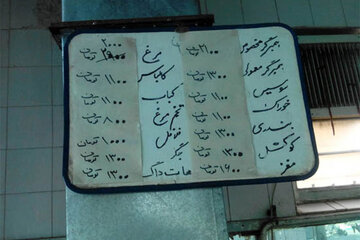 همبرگر مخصوص ۲۱۰۰ تومان
همبرگر معمولی ۱۳۰۰ تومان
سوسیس ۱۱۰۰ تومان
خوراک ۱۱۰۰ تومان
بندری ۱۱۰۰ تومان
کوکتل ۱۳۰۰ تومان
مغز ۱۶۰۰ تومان
مرغ ۲۰۰۰ تومان
کالباس ۱۱۰۰ تومان
کباب ۱۱۰۰ تومان
تخم مرغ ۸۰۰ تومان
فلافل ۱۰۰۰ تومان
جگر ۱۳۰۰ تومان
هات داگ ۱۳۰۰ تومان